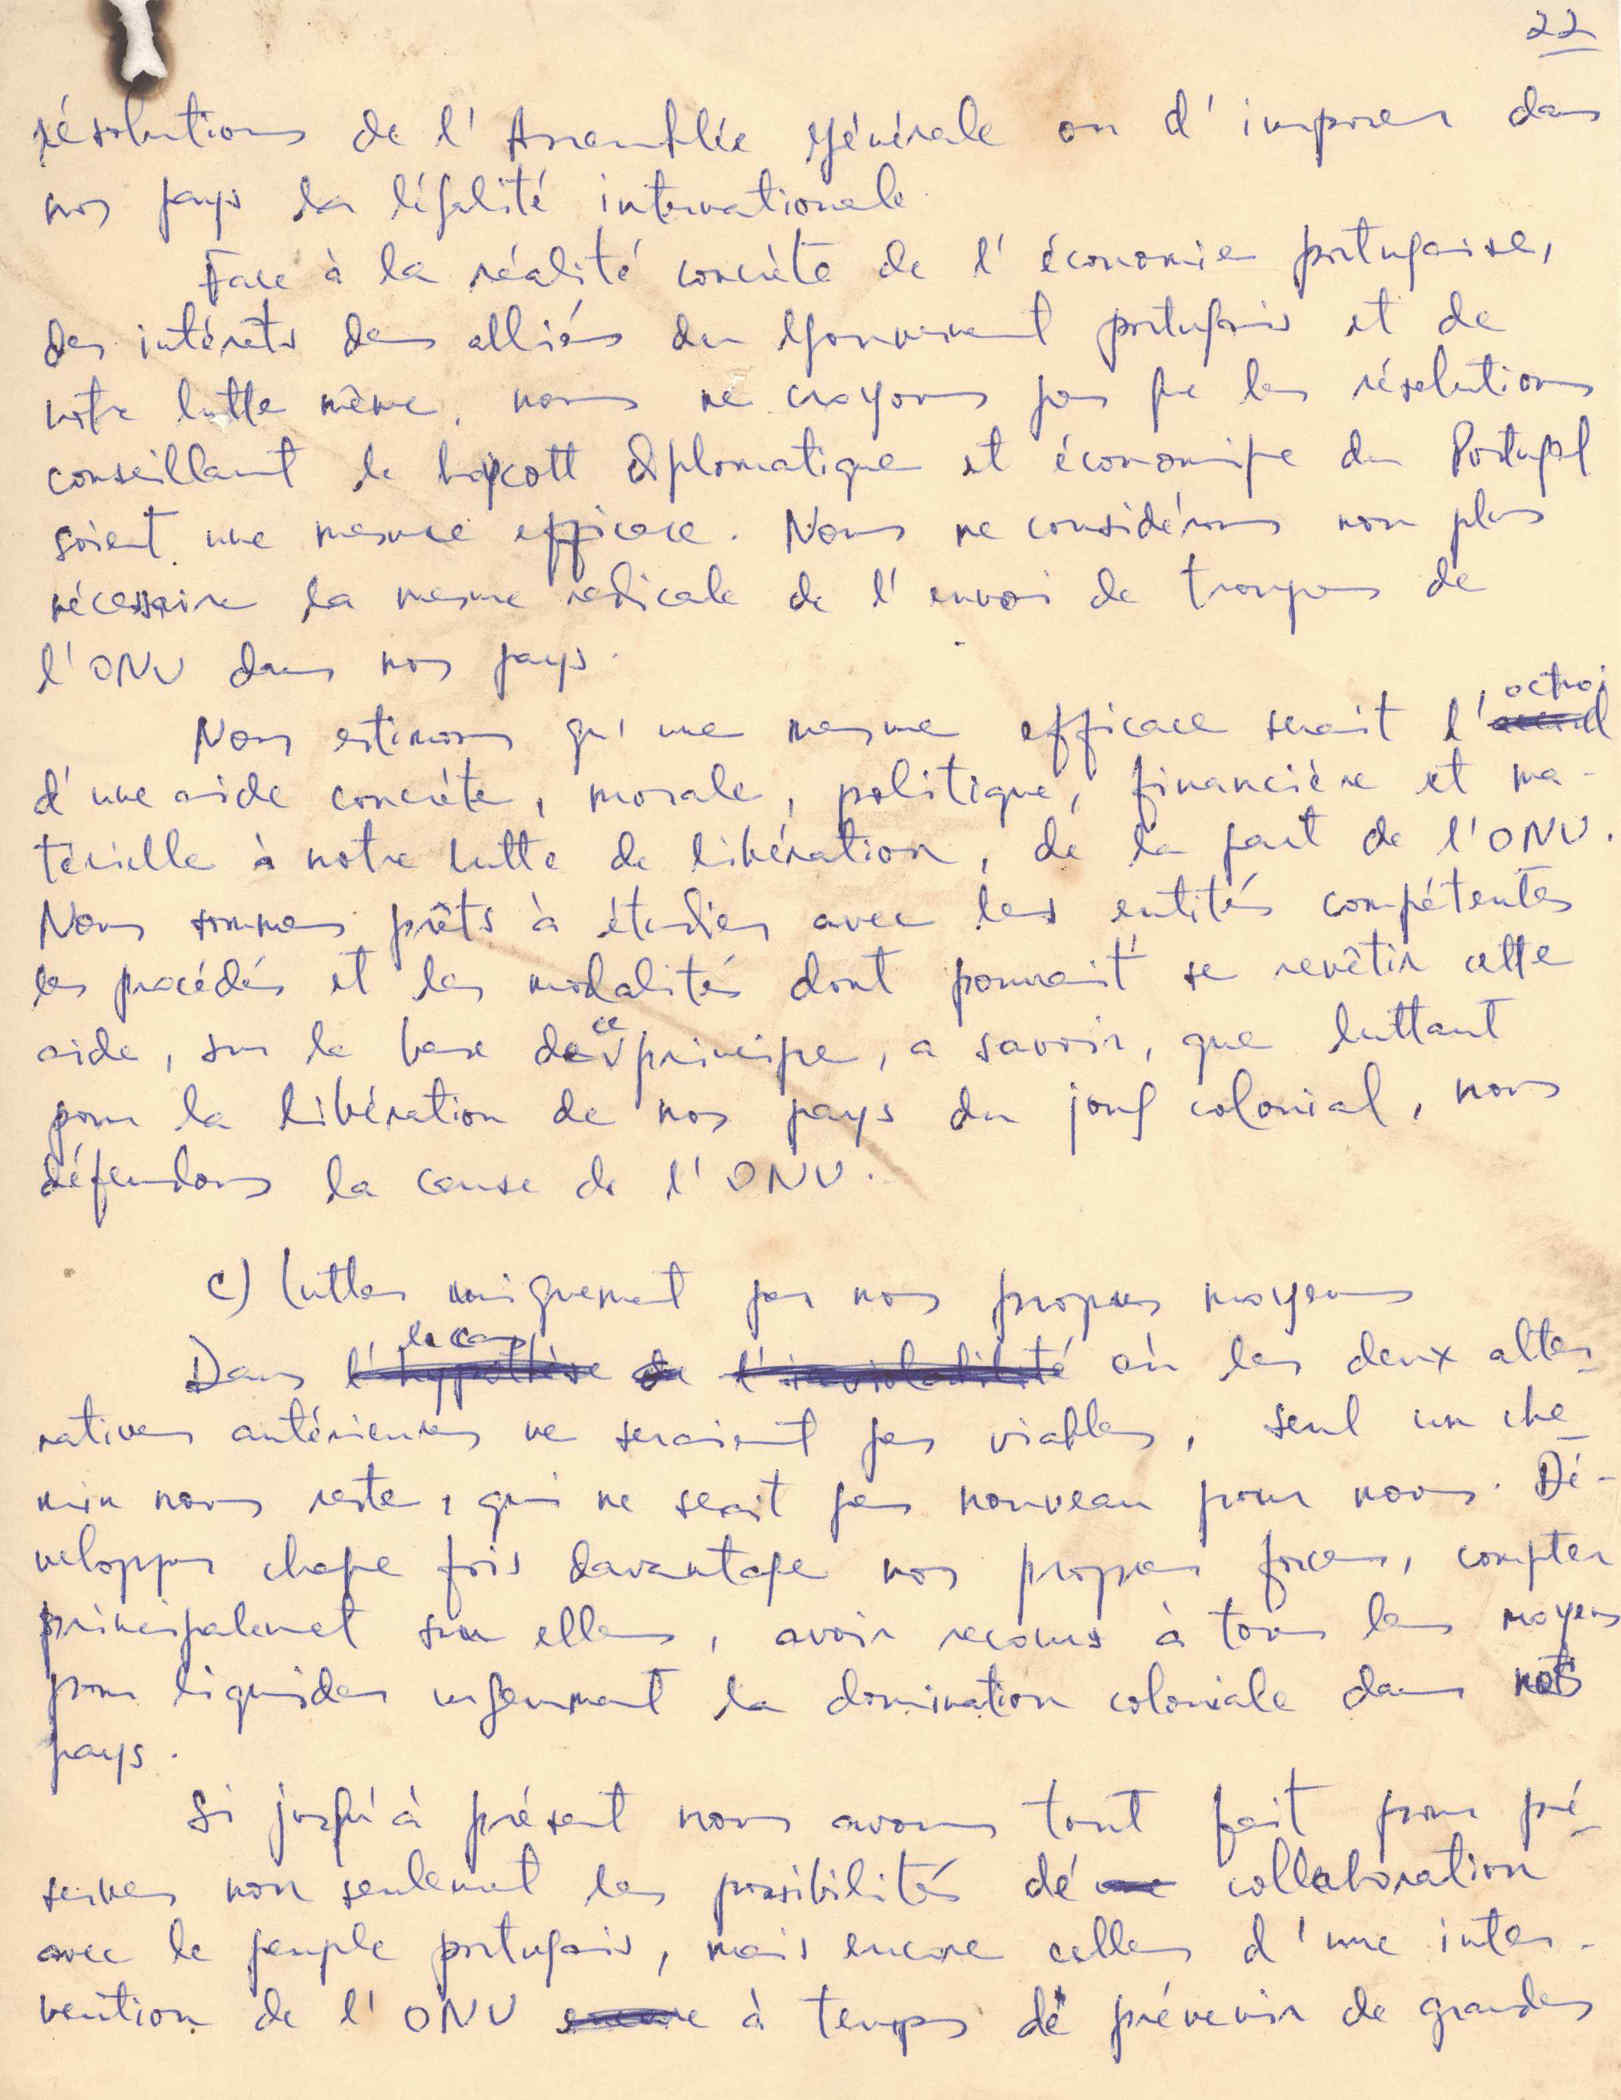 22
résolutions de l'Assemblée générale ou d'imposer dans
nos pays la légalité internationale.
Face à la réalité concrète de l'économie portugaise,
des intérêts des alliés du gouvernement portugais et de
notre lutte même, nous ne croyons pas que les résolutions
conseillant le boycott diplomatique et économique du Portugal
soient une mesure efficace. Nous ne considérons non plus
nécessaire la mesure radicale de l'envoi de troupes de
l'ONU dans nos pays.
octroi
Nous estimons qu'une mesure efficace serait l'
d'une aide concrète, morale, politique, financière et ma-
térielle à notre lutte de libération, de la part de l'ONU.
Nous sommes prêts à étudier avec les entités compétentes
les procédés et les modalités dont pourrait se revêtir cette
ce
aide, sur la base de principe, a savoir, que luttant
pour la libération de nos pays du joug colonial, nous
défendons la cause de l'ONU.
c) lutter uniquement par nos propres moyens
le cas
Dans l'hypothèse de l'inviolabilité où les deux alter-
natives antérieures ne seraient pas viables, seul un che-
min nous reste, qui ne serait pas nouveau pour nous. Dé-
velopper chaque fois davantage nos propres forces, compter
principalement sur elles, avoir recours à tous les moyens
pour liquider urgemment la domination coloniale dans nos
pays.
Si jusqu'à présent nous avons tout fait pour pré-
server non seulement les possibilités de une collaboration
avec le peuple portugais, mais encore celles d'une inter-
vention de l'ONU encore à temps de prévenir de grandes